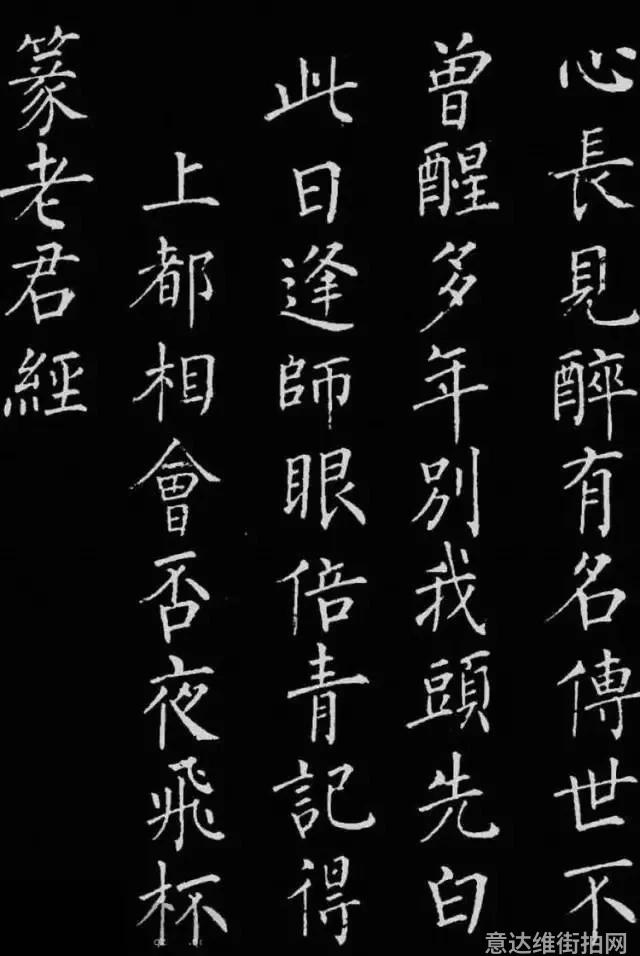 心長見醉有名傳世不
曾醒多年別我頭先白
此日逢師眼倍青記得
上都相會否夜飛杯
篆老君經
意达维街拍网